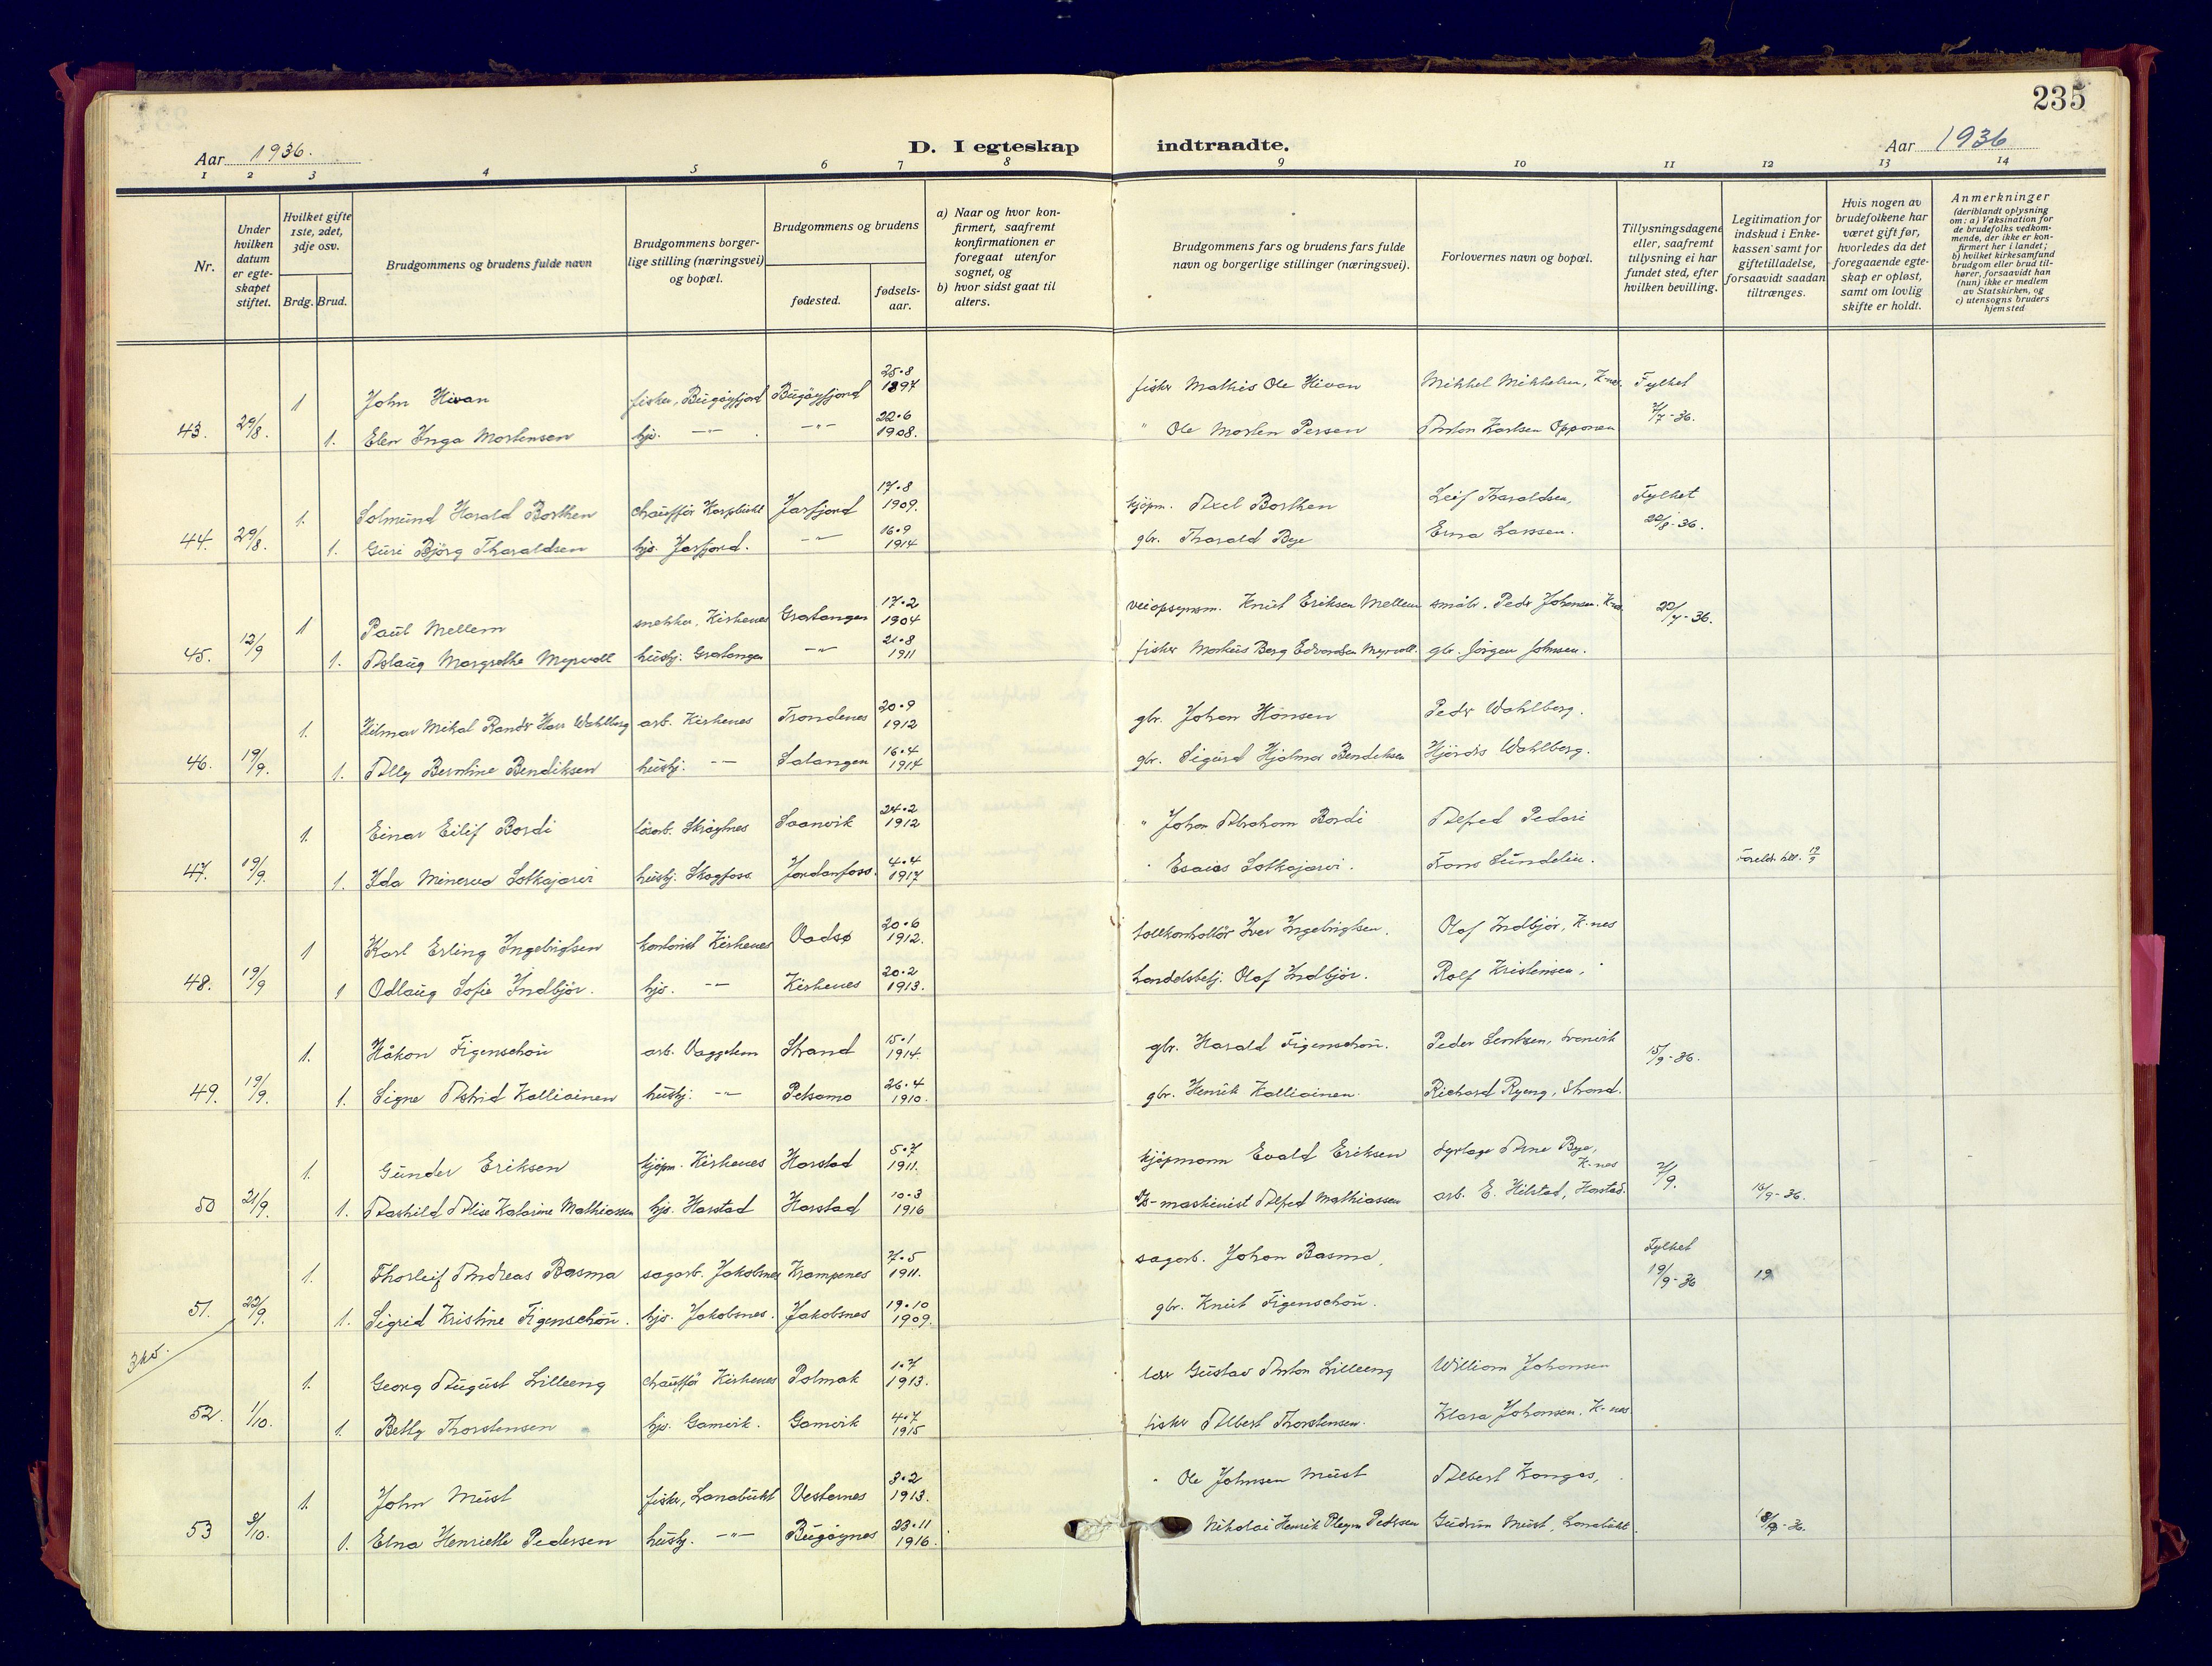 235
Aar 1936. D. I egteskap indtraadte. Aar 1936
1 2 3 4 5 6 7 8 9 10 11 12 13 14
Nr.
Under hvilken datum er egteskapet stiftet.
Hvilket gifte 1ste, 2det, 3dje osv.
Brdg. Brud.
Brudgommens og brudens fulde navn
Brudgommens borgerlige stilling (næringsvei) og bopæl.
Brudgommens og brudens
fødested.
fødselsaar.
a) Naar og hvor konfirmert, saafremt konfirmationen er foregaat utenfor sognet, og
b) hvor sidst gaat til alters.
Brudgommens fars og brudens fars fulde navn og borgerlige stillinger (næringsvei).
Forlovernes navn og bopæl.
Tillysningsdagene eller, saafremt tillysning ei har fundet sted, efter hvilken bevilling.
Legitimation for indskud i Enkekassen samt for giftetilladelse, forsaavidt saadan tiltrænges.
Hvis nogen av brudefolkene har været gift før, hvorledes da det foregaaende egteskap er opløst, samt om lovlig skifte er holdt.
Anmerkninger (deriblandt oplysning om: a) Vaksination for de brudefolks vedkommende, der ikke er konfirmert her i landet; b) hvilket kirkesamfund brudgom eller brud tilhører, forsaavidt han (hun) ikke er medlem av Statskirken, og c) utensogns bruders hjemsted
1 John Hivan fisker, Bugøyfjord Bugøyfjord 25.8 1897 fisker Mathis Ole Hivan Mikkel Mikkelsen, K-nes Fylket
43. 29/8. 1. Elen Inga Mortensen hjs. —"— —"— 22.6 1908. " Ole Morten Persen Anton Karlsen Opponen 7/7-36.
1. Solmund Harald Borthen chauffør Karpbukt Jarfjord 17.8 1909. kjøpm. Axel Borthen Leif Tharaldsen, Fylket
44. 29/8. 1. Guri Bjørg Tharaldsen hjs. Jarfjord. —"— 16.9 1914 gbr. Tharald Bye Erna Larssen. 20/8-36.
1 Paul Mellem snekker, Kirkenes Gratangen 17.2 1904 veiopsynsm. Knut Eriksen Mellem småbr. Peder Johansen. K-nes 20/7-36.
45. 12/9 1. Aslaug Margrethe Myrvoll husbj. Gratangen —"— 21.8 1911 fisker Markus Berg Edvardsen Myrvoll. gbr. Jørgen Johnsen.
1. Hilmar Mikal Rander Hans Wahlberg arb. Kirkenes Trondenes 20.9 1912 gbr. Johan Hansen Peder Wahlberg.
46. 19/9. 1. Ally Berntine Bendiksen husbj. —"— Salangen 16.4 1914 gbr. Sigurd Hjalmar Bendiksen Hjørdis Wahlberg.
1. Einar Eilif Bordi løsarb. Skrøytnes Svanvik 24.2 1912 " Johan Abraham Bordi Alfred Pedari
47. 19/9. 1. Ida Minerva Sotkajarvi husbj. Skogfoss Jordanfoss. 4.4 1917 " Esaias Sotkajarvi. Frans Sundelin. Foreldr. till. 19/9
1 Karl Erling Ingebrigtsen kontorist Kirkenes Vadsø 20.6 1912. tollkontrollør Iver Ingebrigtsen. Olaf Indbjør, K-nes
48. 19/9 1 Odlaug Sofie Indbjør. hjs. —"— Kirkenes 20.2 1913. handelsbetj. Olaf Indbjør. Rolf Kristensen, "
1. Håkon Figenschou arb. Vaggetem Strand 15.1 1914. gbr. Harald Figenschou. Peder Lentsen, Svanvik 15/9-36.
49. 19/9. 1. Signe Astrid Kalliainen husbj. —"— Petsamo 26.4 1910. gbr. Henrik Kalliainen. Richard Ryeng, Strand.
1. Gunder Eriksen kjøpm. Kirkenes Harstad 5.7 1911. kjøpmann Evald Eriksen Arne Bye, K-nes
50 21/9. 1. Aashild Alise Katarine Mathiassen hjs. Harstad Harstad 10.3 1916 maskinist Alfred Mathiassen arb. E. Hilstad, Harstad. 2/9. 16/9-36.
1. Thorleif Andreas Basma sagarb. Jakobsnes Krampenes 7.5 1911. sagarb. Johan Basma, Fylket
51. 22/9. 1. Sigrid Kristine Figenschou. hjs. Jakobsnes. Jakobsnes 19.10 1909. gbr. Knut Figenschou. 19/9-36 19
1. Georg August Lilleeng chauffør Kirkenes Polmak 1.7 1913. Gustav Anton Lilleeng William Johansen
52. 1/10. 1. Betty Thorstensen hjs. Gamvik. Gamvik 4.7 1915 fisker Albert Thorstensen. Klara Johansen. K-nes.
1. John Must fisker, Lanabukt Vesternes 3.2 1913. " Ole Johnsen Must Albert Kangas,
53 3/10. 1. Elna Henriette Pedersen husbj. —"— Bugøynes 23.11 1916. Nikolai Henrik Pleym Pedersen Gudrun Must, Lanabukt. 18/9-36.